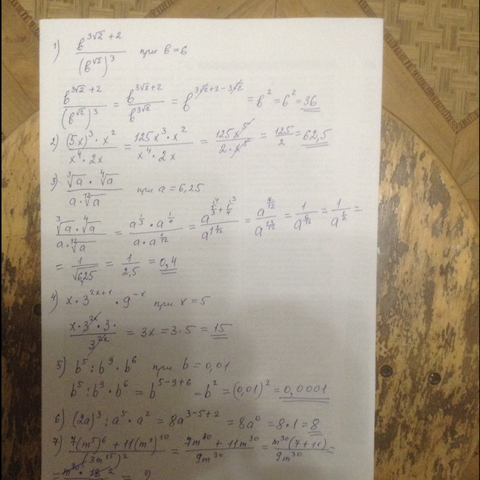 1) b^(3√2+2) / (b^√2)^3 при b=6
b^(3√2+2) / (b^√2)^3 = b^(3√2+2) / b^(3√2) = b^(3√2+2-3√2) = b^2 = 6^2 = 36
2) (5x)^3 · x^2 / x^4 · 2x = 125x^3 · x^2 / x^4 · 2x = 125x^5 / 2 · x^5 = 125/2 = 62,5
3) ∛a · ∜a / a · ¹²√a при a = 6,25
∛a · ∜a / a · ¹²√a = a^(1/3) · a^(1/4) / a · a^(1/12) =
= 1/√6,25 = 1/2,5 = 0,4
4) x · 3^(2x+1) · 9^(-x) при x = 5
x · 3^(2x) · 3 · / 3^(2x) = 3x = 3·5 = 15
5) b^5 : b^9 · b^6 при b = 0,01
b^5 : b^9 · b^6 = b^(5-9+6) = b^2 = (0,01)^2 = 0,0001
6) (2a)^3 : a^5 · a^2 = 8a^(3-5+2) = 8a^0 = 8·1 = 8
7) 7(m^5)^6 + 11(m^3)^10 / (3m^15)^2 = 7m^30 + 11m^30 / 9m^30 = m^30(7+11) / 9m^30 =